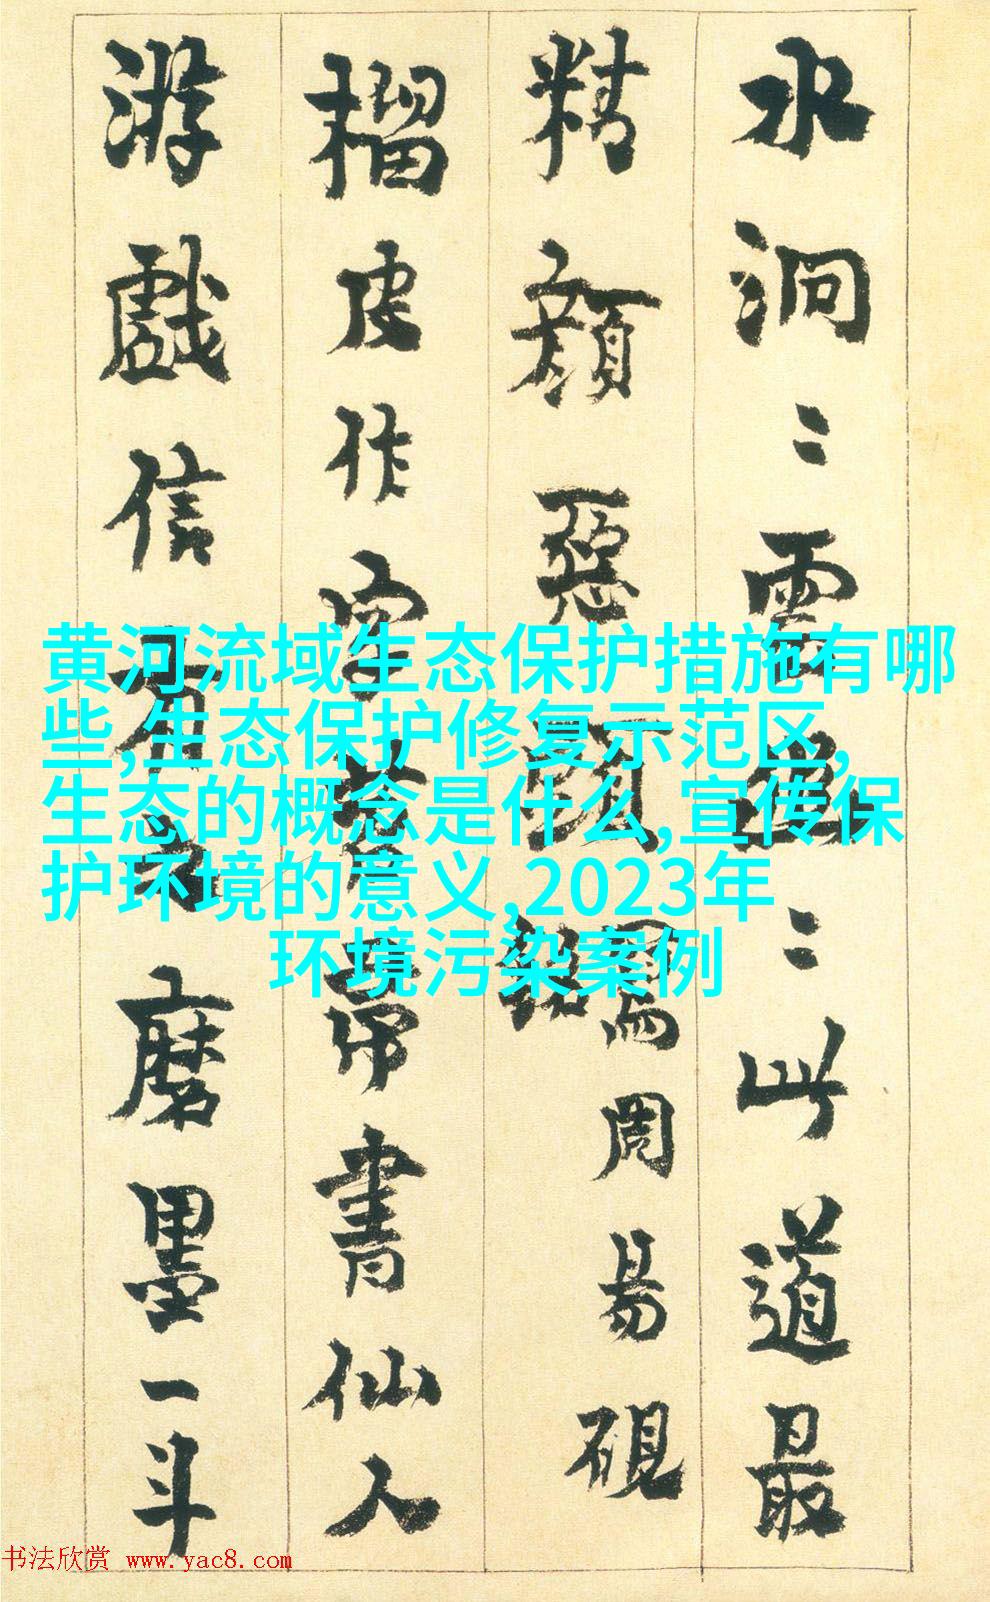 水洞〻雲〻此道最
精顔惡頭周易硯
榴皮作字苕帚書仙人
游戲信有之磨墨一斗
黄河流域生态保护措施有哪
些,生态保护修复示范区,
生态的概念是什么,宣传保
护环境的意义,2023年
环境污染案例
书法欣赏 www.yac8.com